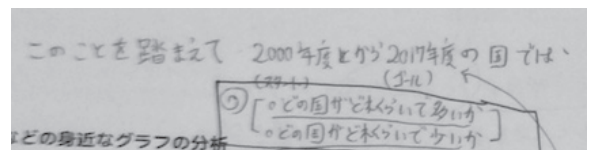 このことを踏まえて 2000年度とから2017年度の国では、
(スタート) (ゴール)
⑦ 。どの国がどれくらいで多いか
。どの国がどれくらいで少いか
などの身近なグラフの分析